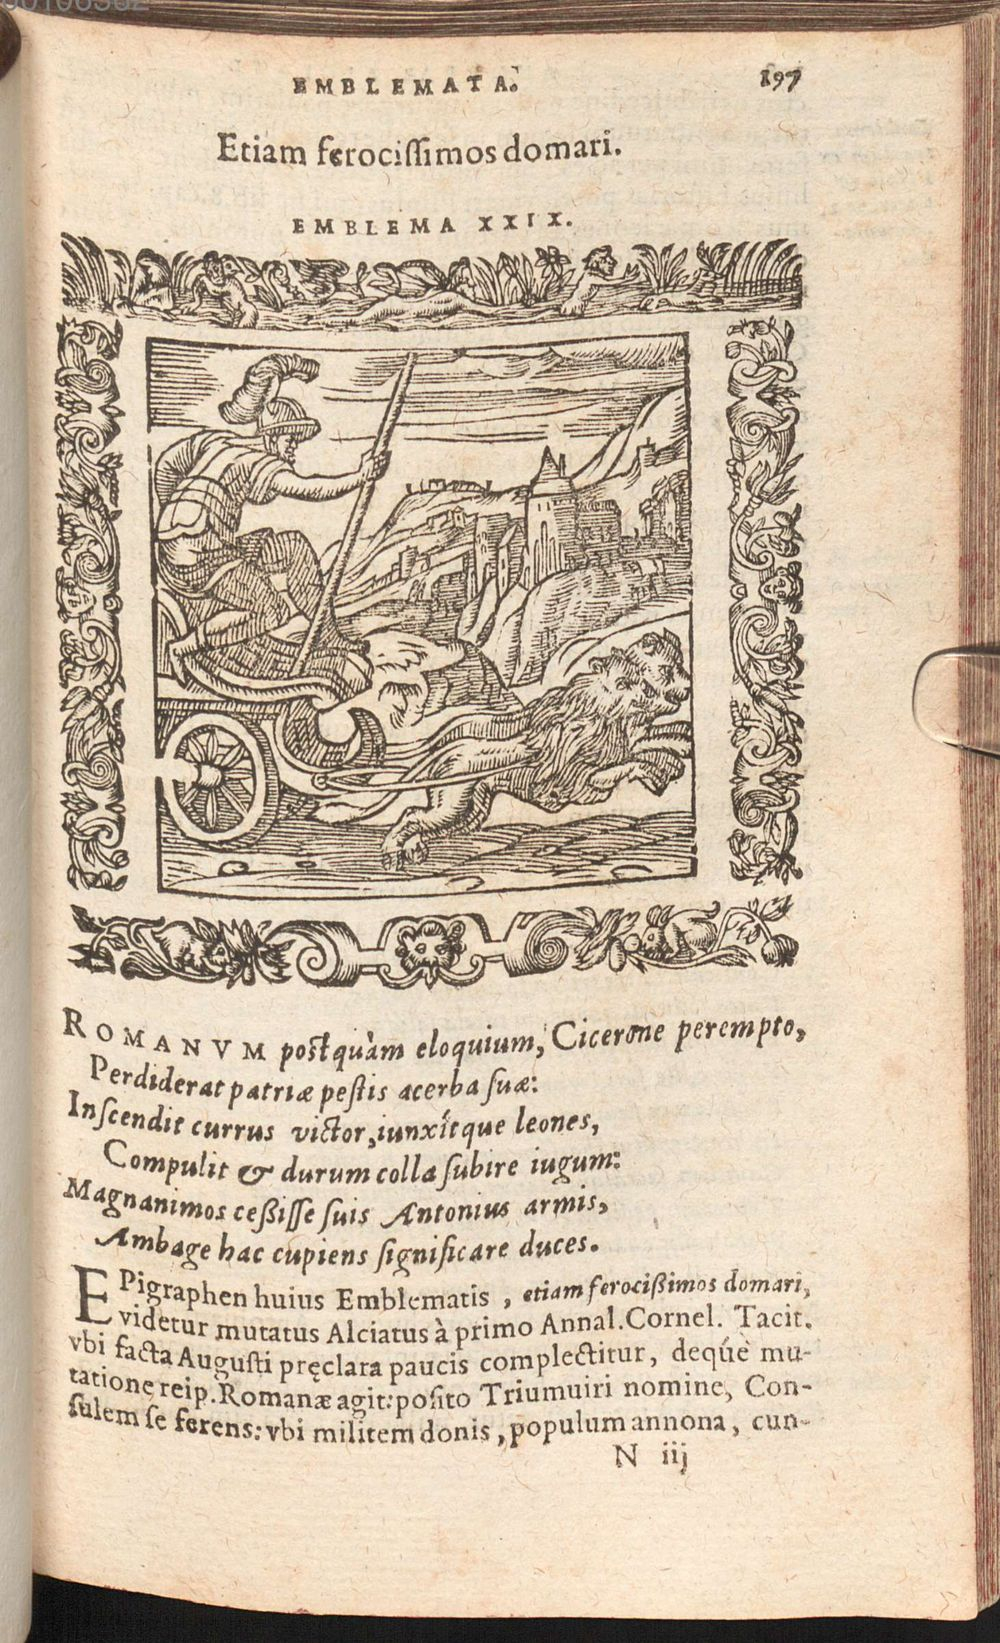 EMBLEMATA. 197
Etiam ferociſſimos domari.
EMBLEMA XXIX.
ROMANVM poſtquàm eloquium, Cicerone perempto,
Perdiderat patriæ peſtis acerba ſuæ:
Inſcendit currus victor, iunxítque leones,
Compulit & durum colla ſubire iugum:
Magnanimos ceßiſſe ſuis Antonius armis,
Ambage hac cupiens ſignificare duces.
EPigraphen huius Emblematis, etiam ferocißimos domari,
videtur mutatus Alciatus à primo Annal. Cornel. Tacit.
vbi facta Auguſti pręclara paucis complectitur, deqúe mu-
tatione reip. Romanæ agit: poſito Triumuiri nomine, Con-
ſulem ſe ferens: vbi militem donis, populum annona, cun-
N iij